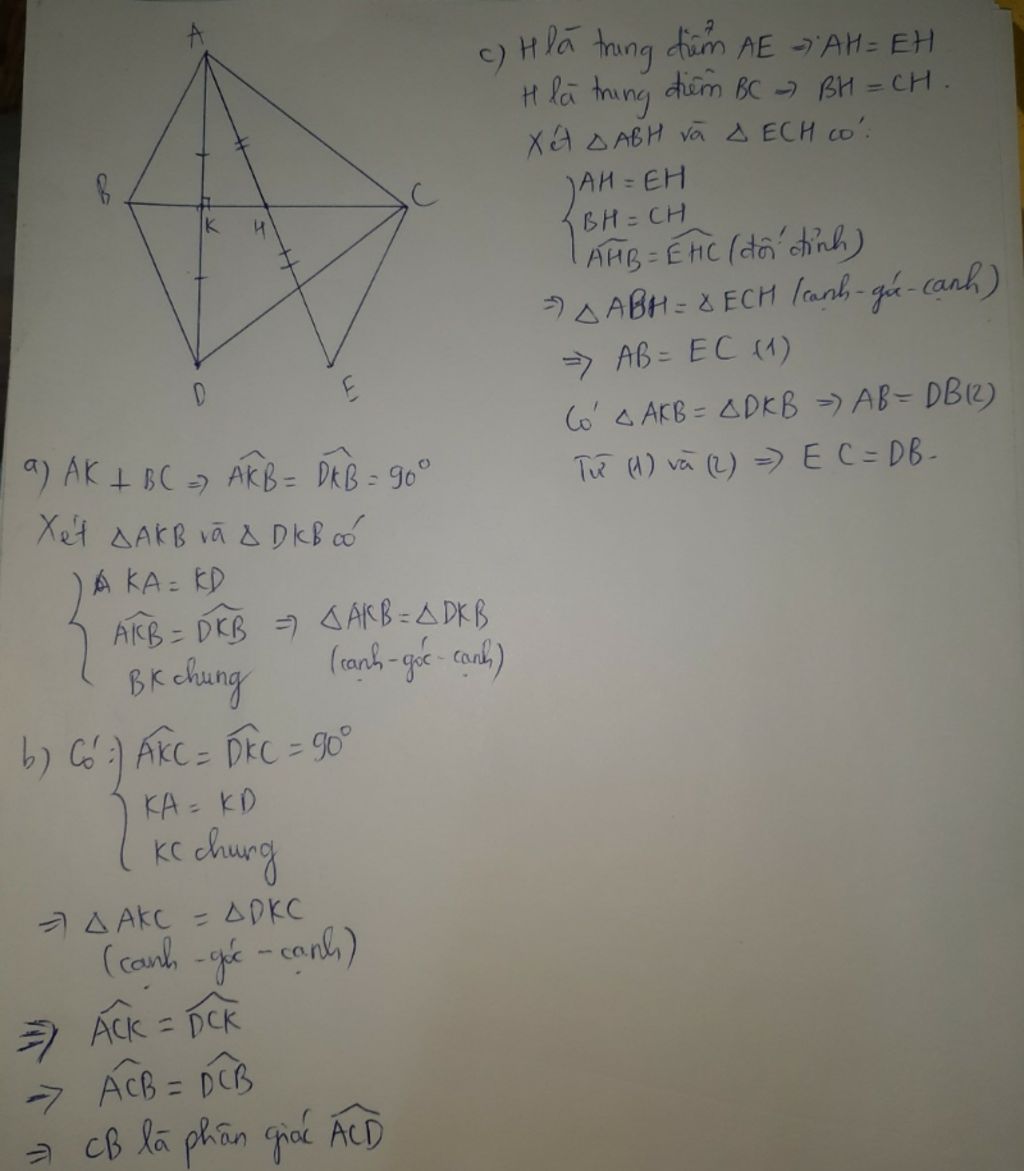 A
B
K
H
C
D
E
a) AK ⊥ BC ⇒ \widehat{AKB} = \widehat{DKB} = 90°
Xét △AKB và △DKB có
KA = KD
\widehat{AKB} = \widehat{DKB} ⇒ △AKB = △DKB
BK chung (cạnh-góc-cạnh)
b) Có: \widehat{AKC} = \widehat{DKC} = 90°
KA = KD
KC chung
⇒ △AKC = △DKC
(cạnh-góc-cạnh)
⇒ \widehat{ACK} = \widehat{DCK}
⇒ \widehat{ACB} = \widehat{DCB}
⇒ CB là phân giác \widehat{ACD}
c) H là trung điểm AE ⇒ AH = EH
H là trung điểm BC ⇒ BH = CH.
Xét △ABH và △ECH có:
AH = EH
BH = CH
\widehat{AHB} = \widehat{EHC} (đối đỉnh)
⇒ △ABH = △ECH (cạnh-góc-cạnh)
⇒ AB = EC (1)
Có △AKB = △DKB ⇒ AB = DB (2)
Từ (1) và (2) ⇒ EC = DB.